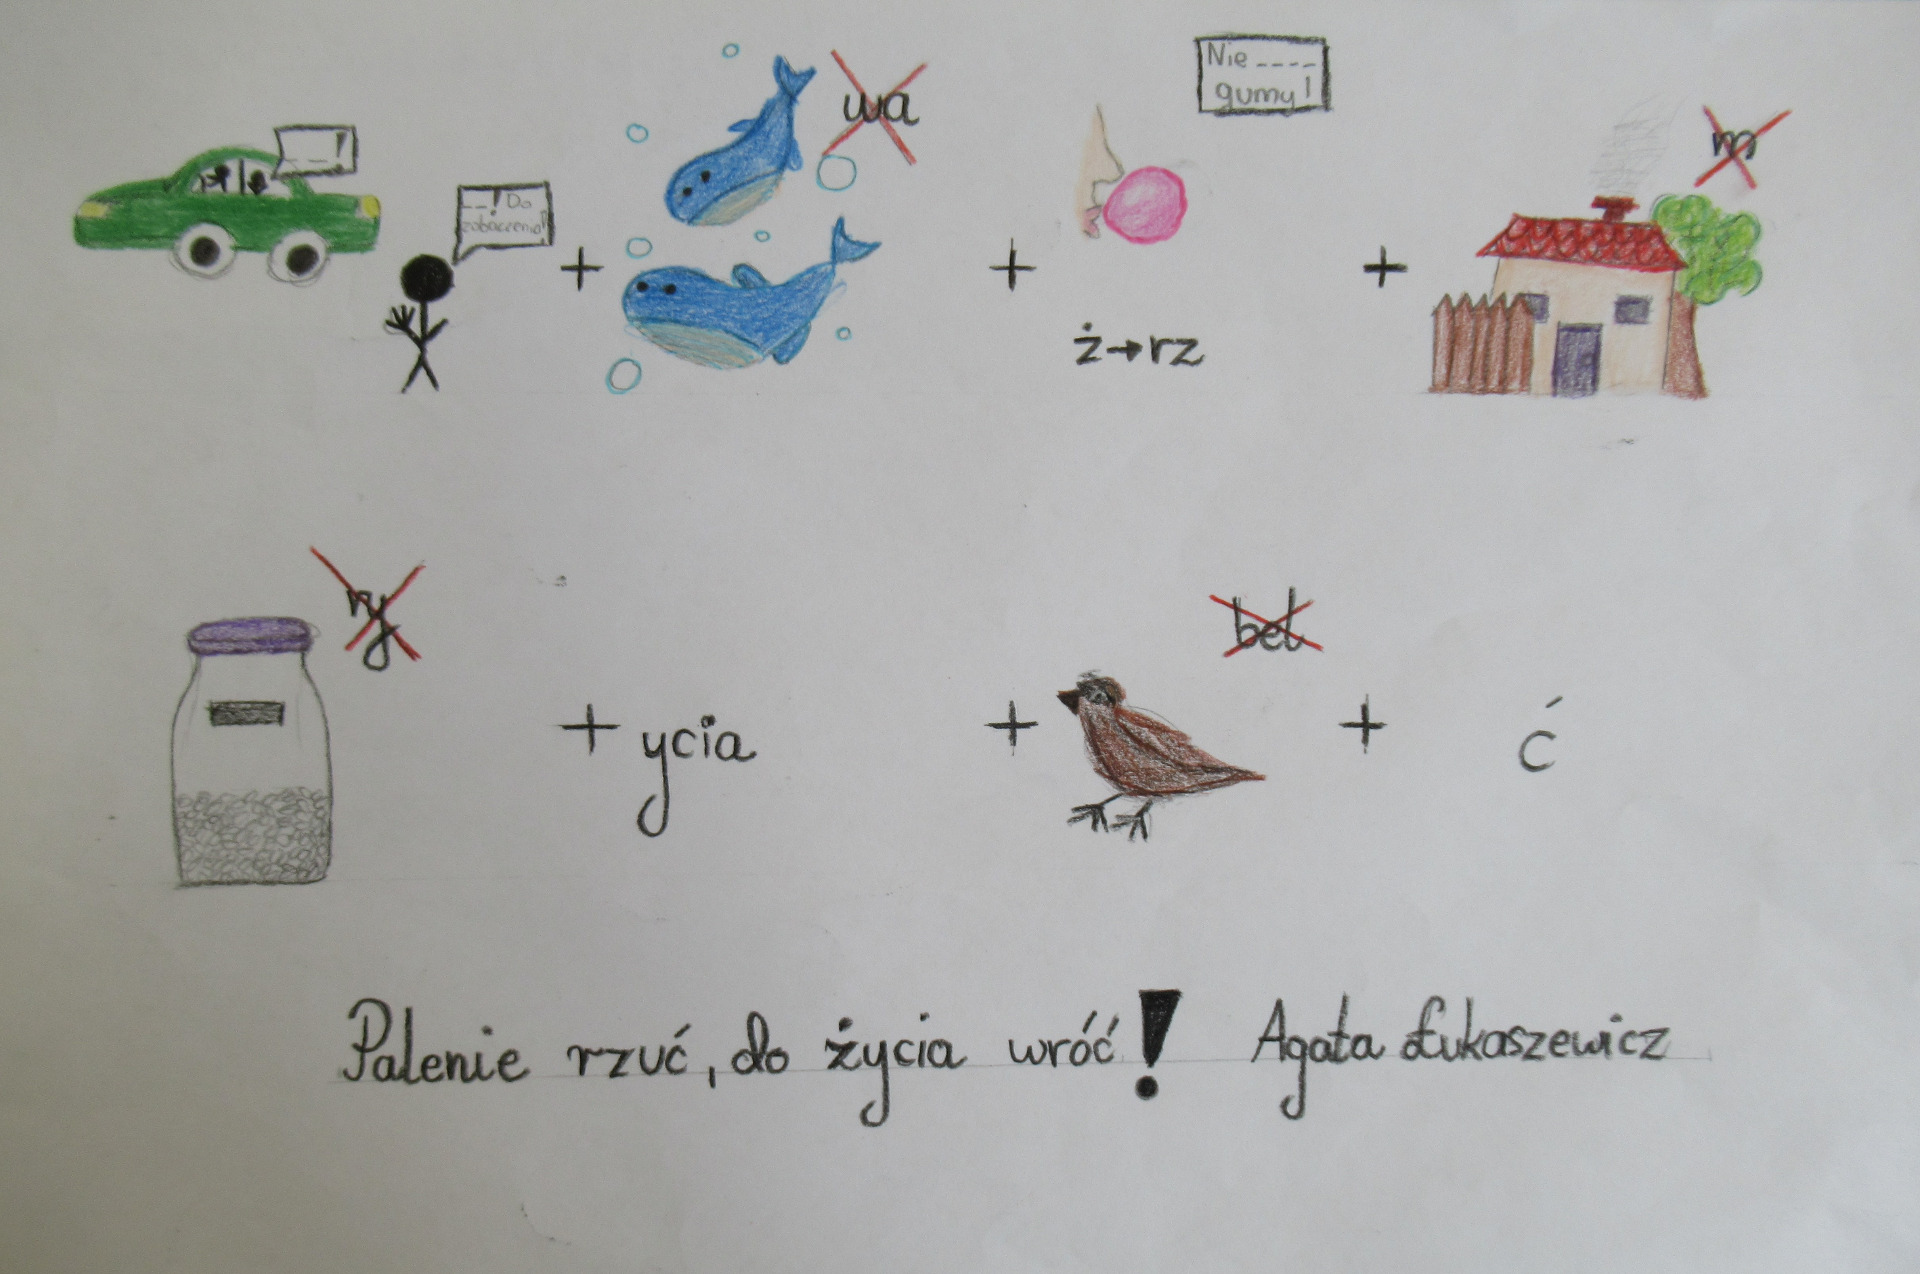 __!
__! Do
zobaczenia!
wa
Nie ----
gumy!
m
+ + +
ż→rz
ry
bel
+ ycia + + ć
Palenie rzuć, do życia wróć! Agata Łukaszewicz